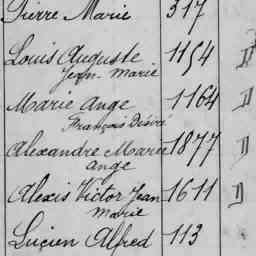 Pierre Marie 317
Louis Auguste 1154
Jean Marie
Marie Ange 1164
François Désiré
Alexandre Marie 1877
Ange
Alexis Victor Jean 1611
Marie
Lucien Alfred 113